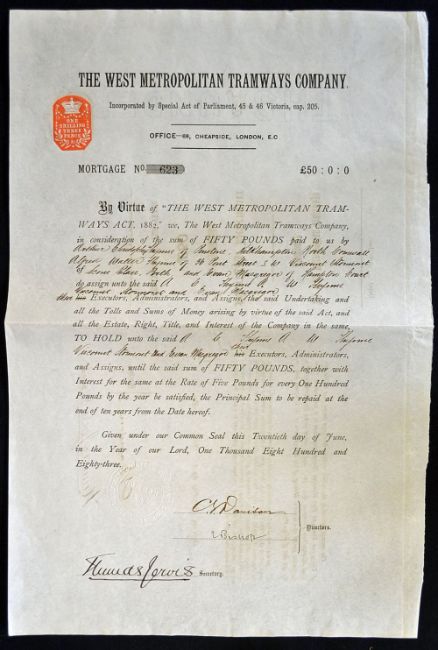 THE WEST METROPOLITAN TRAMWAYS COMPANY.
Incorporated by Special Act of Parliament, 45 & 46 Victoria, cap. 205.
ONE
SHILLING
THREE
PENCE
OFFICE—69, CHEAPSIDE, LONDON, E.C
MORTGAGE No. 623 £50 : 0 : 0
By Virtue of "THE WEST METROPOLITAN TRAM-
WAYS ACT, 1882," we, The West Metropolitan Tramways Company,
in consideration of the sum of FIFTY POUNDS paid to us by
of Kilkhampton North Cornwall
Alfred Walter of Viscount Stormont
of Scone Palace Perth and Evan Macgregor of Hampton Court
do assign unto the said A C A W
Viscount Stormont and Evan Macgregor
Executors, Administrators, and Assigns, the said Undertaking and
all the Tolls and Sums of Money arising by virtue of the said Act, and
all the Estate, Right, Title, and Interest of the Company in the same,
TO HOLD unto the said A C A W
Viscount Stormont and Evan Macgregor their Executors, Administrators,
and Assigns, until the said sum of FIFTY POUNDS, together with
Interest for the same at the Rate of Five Pounds for every One Hundred
Pounds by the year be satisfied, the Principal Sum to be repaid at the
end of ten years from the Date hereof.
Given under our Common Seal this Twentieth day of June,
in the Year of our Lord, One Thousand Eight Hundred and
Eighty-three.
Bishop
Directors.
Jervis Secretary.